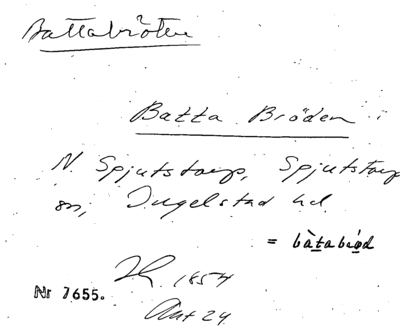 Battabröten
Batta Bröden i
N. Spjutstorp, Spjutstorp
sn, Ingelstad hd
= bàtabrød
1854
Nr 7655. Akt 24